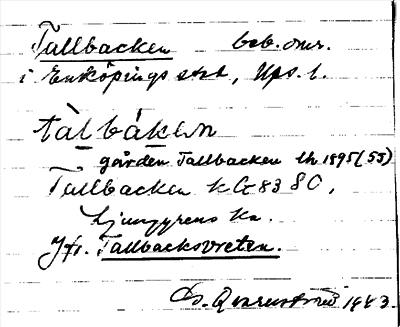 Tallbacken beb. omr.
i Enköpings stad, Upps. l.
tàlbákεn
gården Tallbacken lh 1895 (55)
Tallbacken kG 83 80,
Ljunggrens ka.
Jfr. Tallbacksvreten.
1983.